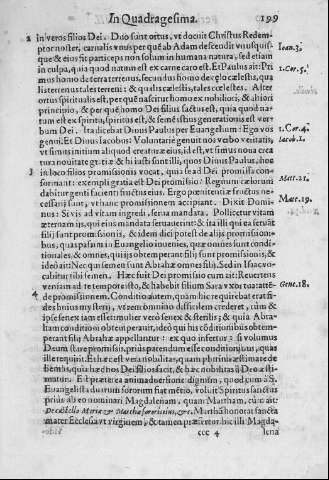 In Quadragesima. 199
2 in veros filios Dei. Duo sunt ortus, vt docuit Christus Redem
ptor noster, carnalis vnus per quē ab Adam descendit vnusquis-
que & eius fit particeps non solum in humana natura, sed etiam
in culpa, quia quod natum est ex carne caro est. Et Paulus ait: Pri
mus homo de terra terrenus, secundus homo de cęlo cælestis, qua
lis terrenus tales terreni: & qualis cælestis, tales cælestes. Alter
ortus spiritualis est, per quē nascitur homo ex nobiliori, & altiori
principio, & per quē homo Dei filius factus est, quia quod na-
tum est ex spiritu, spiritus est, & semē istius generationis est ver-
bum Dei. Ita dicebat Diuus Paulus per Euangelium: Ego vos
genui. Et Diuus Iacobus: Voluntariè genuit nos verbo veritatis,
vt simus initium aliquod creaturæ eius, id est, vt simus noua crea
tura nouitate gratiæ & hi iusti sunt illi, quos Diuus Paulus, hoc
3 in loco filios promissionis vocat, quia se ad Dei promissa con-
formant: exempli gratia est Dei promissio: Regnum cælorum
dabitur genti facienti fructus eius. Ergo pœnitentiæ fructus ne-
cessarij sunt, vt hanc promissionem accipiant. Dixit Domi-
nus: Si vis ad vitam ingredi, serua mandata. Pollicetur vitam
æternam ijs, qui eius mandata seruauerint: & ita illi qui ea seruāt
filij sunt promissionis, & idem dici potest de alijs promissioni-
bus, quas passim in Euangelio inuenies, quæ omnes sunt condi
tionales, & omnes, qui ijs obtemperant filij sunt promissionis; &
ideò ait: Nec qui semen sunt Abrahæ omnes filij. Sed in Isaac vo-
cabitur tibi semen. Hæc fuit Dei promissio cum ait: Reuertens
veniam ad te tempore isto, & habebit filium Sara vxor tua: attē-
4 de promissionem. Conditio autem, quam hic requirebat erat fi-
des huius mysterij, vt rem omnino difficilem crederet, cùm &
ipse senex iam esset mulier verò senex & sterilis; & quia Abra-
ham conditioni obtemperauit, ideò qui his cōditionibus obtem-
perant filij Abrahæ appellantur: ex quo infertur: si volumus
Deum stare promissis, priùs parendum esse conditionibus, quas
ille requirit. Et hæc est vera nobilitas, quam plurimi æstimare de
bemus, quia hæc nos Dei filios facit, & hæc nobilitas ij Deo æsti-
matur. Et præterea animaduersione dignum, quod, cum à S.
Euangelista duarum sororum fiat mētio, voluit Spiritus sanctus
prius ab eo nominari Magdalenam, quam Martham, cùm ait:
De castello Mariæ & Marthæ sororis eius, &c. Martha honorat sancta
mater Ecclesia vt virginem, & tamen præfertur hic illi Magda-
ccc 4 lena
Ioan. 3.
1. Cor. 5.
1. Cor. 4.
Iacob. 1.
Matt. 21.
Matt. 19.
Gene. 18.